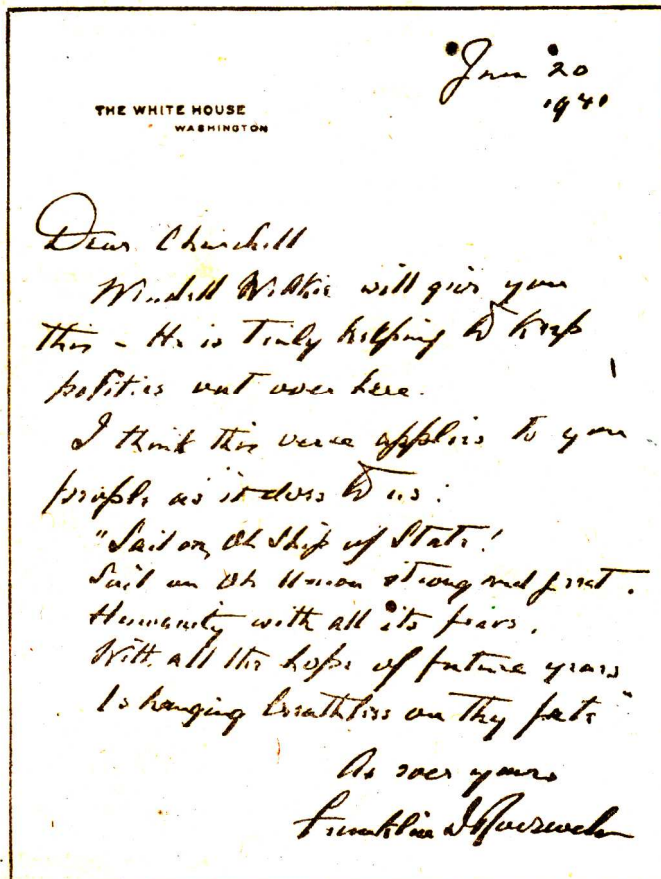 Jan 20
1941
THE WHITE HOUSE
WASHINGTON
Dear Churchill
Wendell Willkie will give you
this - He is truly helping to keep
politics out over here.
I think this verse applies to you
people as it does to us:
"Sail on, Oh Ship of State!
Sail on Oh Union strong and great.
Humanity with all its fears,
With all the hope of future years
Is hanging breathless on thy fate"
As ever yours
Franklin D Roosevelt